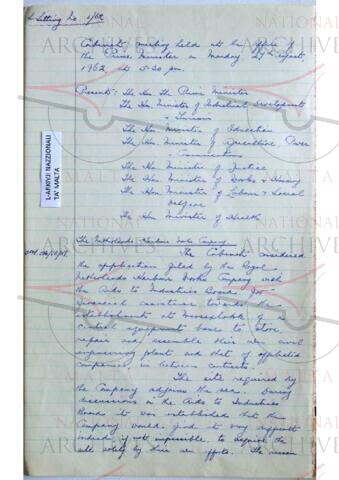 Sitting No. 1/62
Cabinet meeting held at the Office of
the Prime Minister on Monday, 27th August,
1962 at 5.30 pm.
Present: The Hon The Prime Minister
The Hon Minister of Industrial Development
& Tourism
The Hon Minister of Education
The Hon Minister of Agriculture, Power
& Communications
The Hon Minister of Justice
The Hon Minister of Works & Housing
The Hon Minister of Labour & Social
Welfare
The Hon Minister of Health
L-ARKIVJI NAZZJONALI
TA' MALTA
The Netherlands Harbour Works Company
The Cabinet considered
the application filed by the Royal
Netherlands Harbour Works Company with
the Aids to Industries Board for
financial assistance towards the
establishment at Marsaxlokk of a
central equipment base to store
repair and assemble their own civil
engineering plant and that of affiliated
companies in between contracts.
The site required by
the Company adjoins the sea. During
discussions in the Aids to Industries
Board it was established that the
Company would find it very difficult
indeed, if not impossible to acquire the
site solely by their own efforts. The reason
NATIONAL
ARCHIVES
MALTA